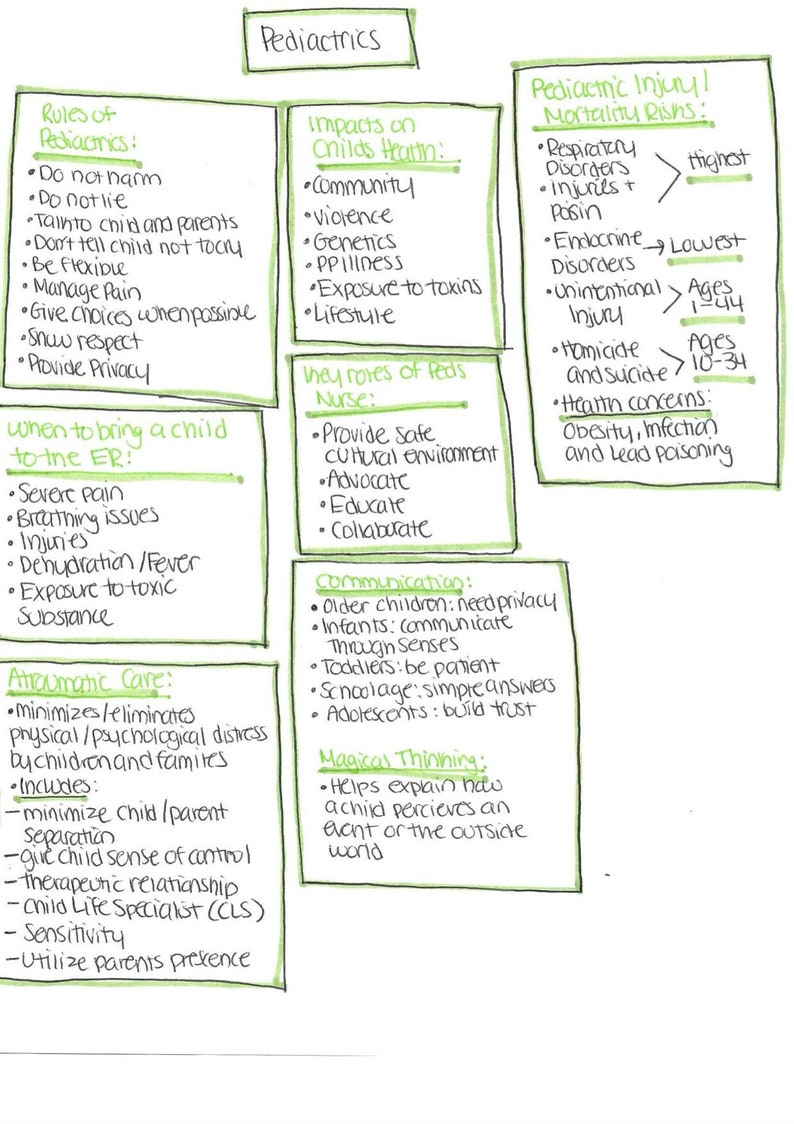 Pediactrics
Rules of
Pediactrics:
• Do not harm
• Do not lie
• Talk to child and parents
• Don't tell child not to cry
• Be flexible
• Manage Pain
• Give choices when possible
• Show respect
• Provide Privacy
Impacts on
Childs Health:
• Community
• Violence
• Genetics
• PP illness
• Exposure to toxins
• Lifestyle
Pediactric Injury/
Mortality Risks:
• Respiratory
Disorders
• Injuries +
Posin
> Highest
• Endocrine → Lowest
Disorders
• Unintentional
Injury
> Ages
1-44
• Homicide
and suicide
> Ages
10-34
• Health concerns:
Obesity, Infection
and Lead poisoning
When to bring a child
to the ER:
• Severe pain
• Breathing issues
• Injuries
• Dehydration / Fever
• Exposure to toxic
Substance
Key roles of Peds
Nurse:
• Provide safe
cultural environment
• Advocate
• Educate
• Collaborate
Atraumatic Care:
• minimizes/eliminates
physical / psychological distress
by children and familes
• Includes:
- minimize child / parent
separation
- give child sense of control
- therapeutic relationship
- Child Life Specialist (CLS)
- Sensitivity
- Utilize parents presence
Communication:
• Older children: need privacy
• Infants: communicate
through senses
• Toddlers: be patient
• School age: simple answers
• Adolescents: build trust
Magical Thinking:
• Helps explain how
a child percieves an
event or the outside
world